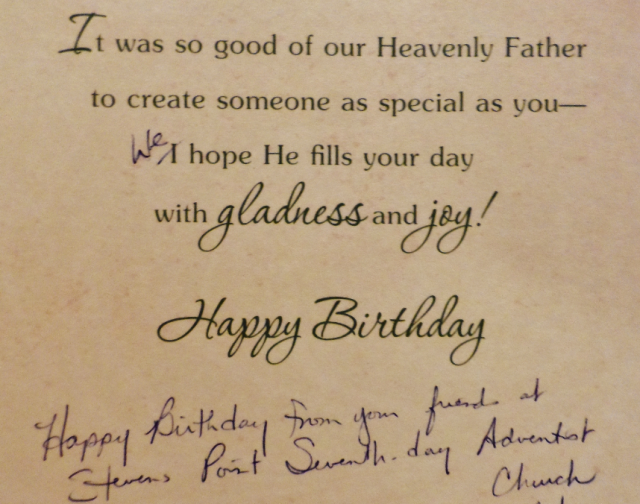 It was so good of our Heavenly Father
to create someone as special as you—
We/I hope He fills your day
with gladness and joy!
Happy Birthday
Happy Birthday from your friends at
Stevens Point Seventh-day Adventist
Church